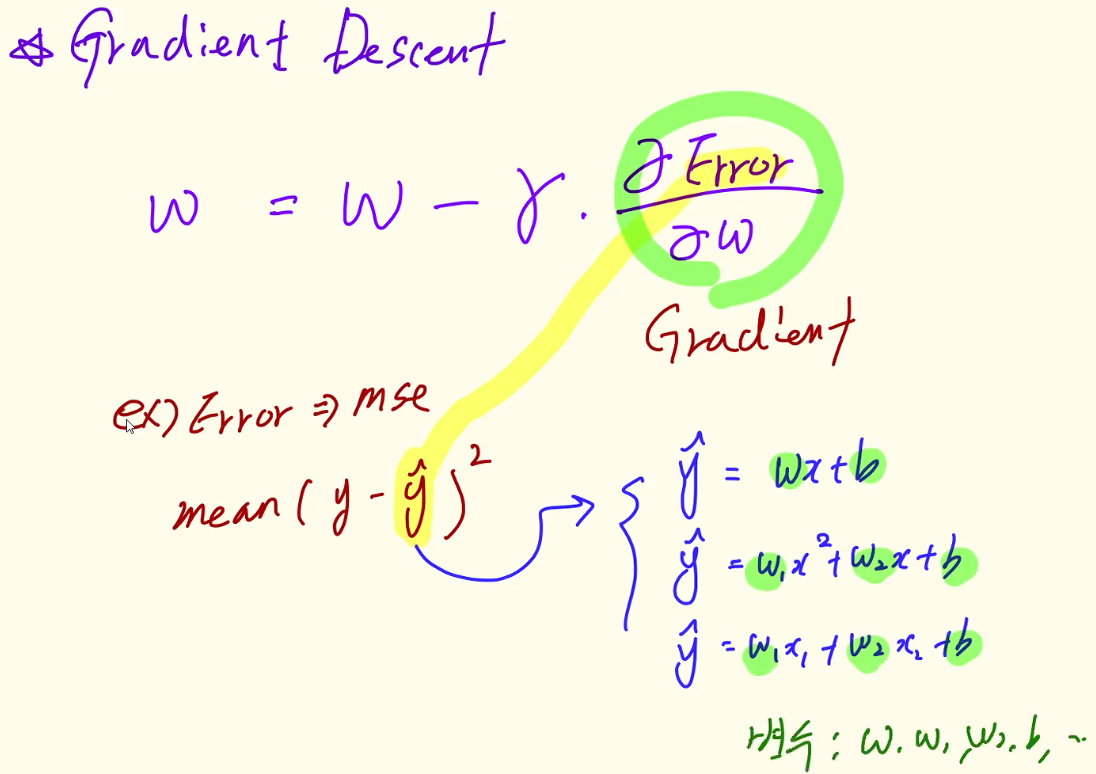 ☆ Gradient Descent
w = w - γ · ∂Error/∂w
Gradient
ex) Error ⇒ mse
mean(y - ŷ)²
ŷ = wx+b
ŷ = w₁x²+w₂x+b
ŷ = w₁x₁+w₂x₂+b
변수: w, w₁, w₂, b, ...